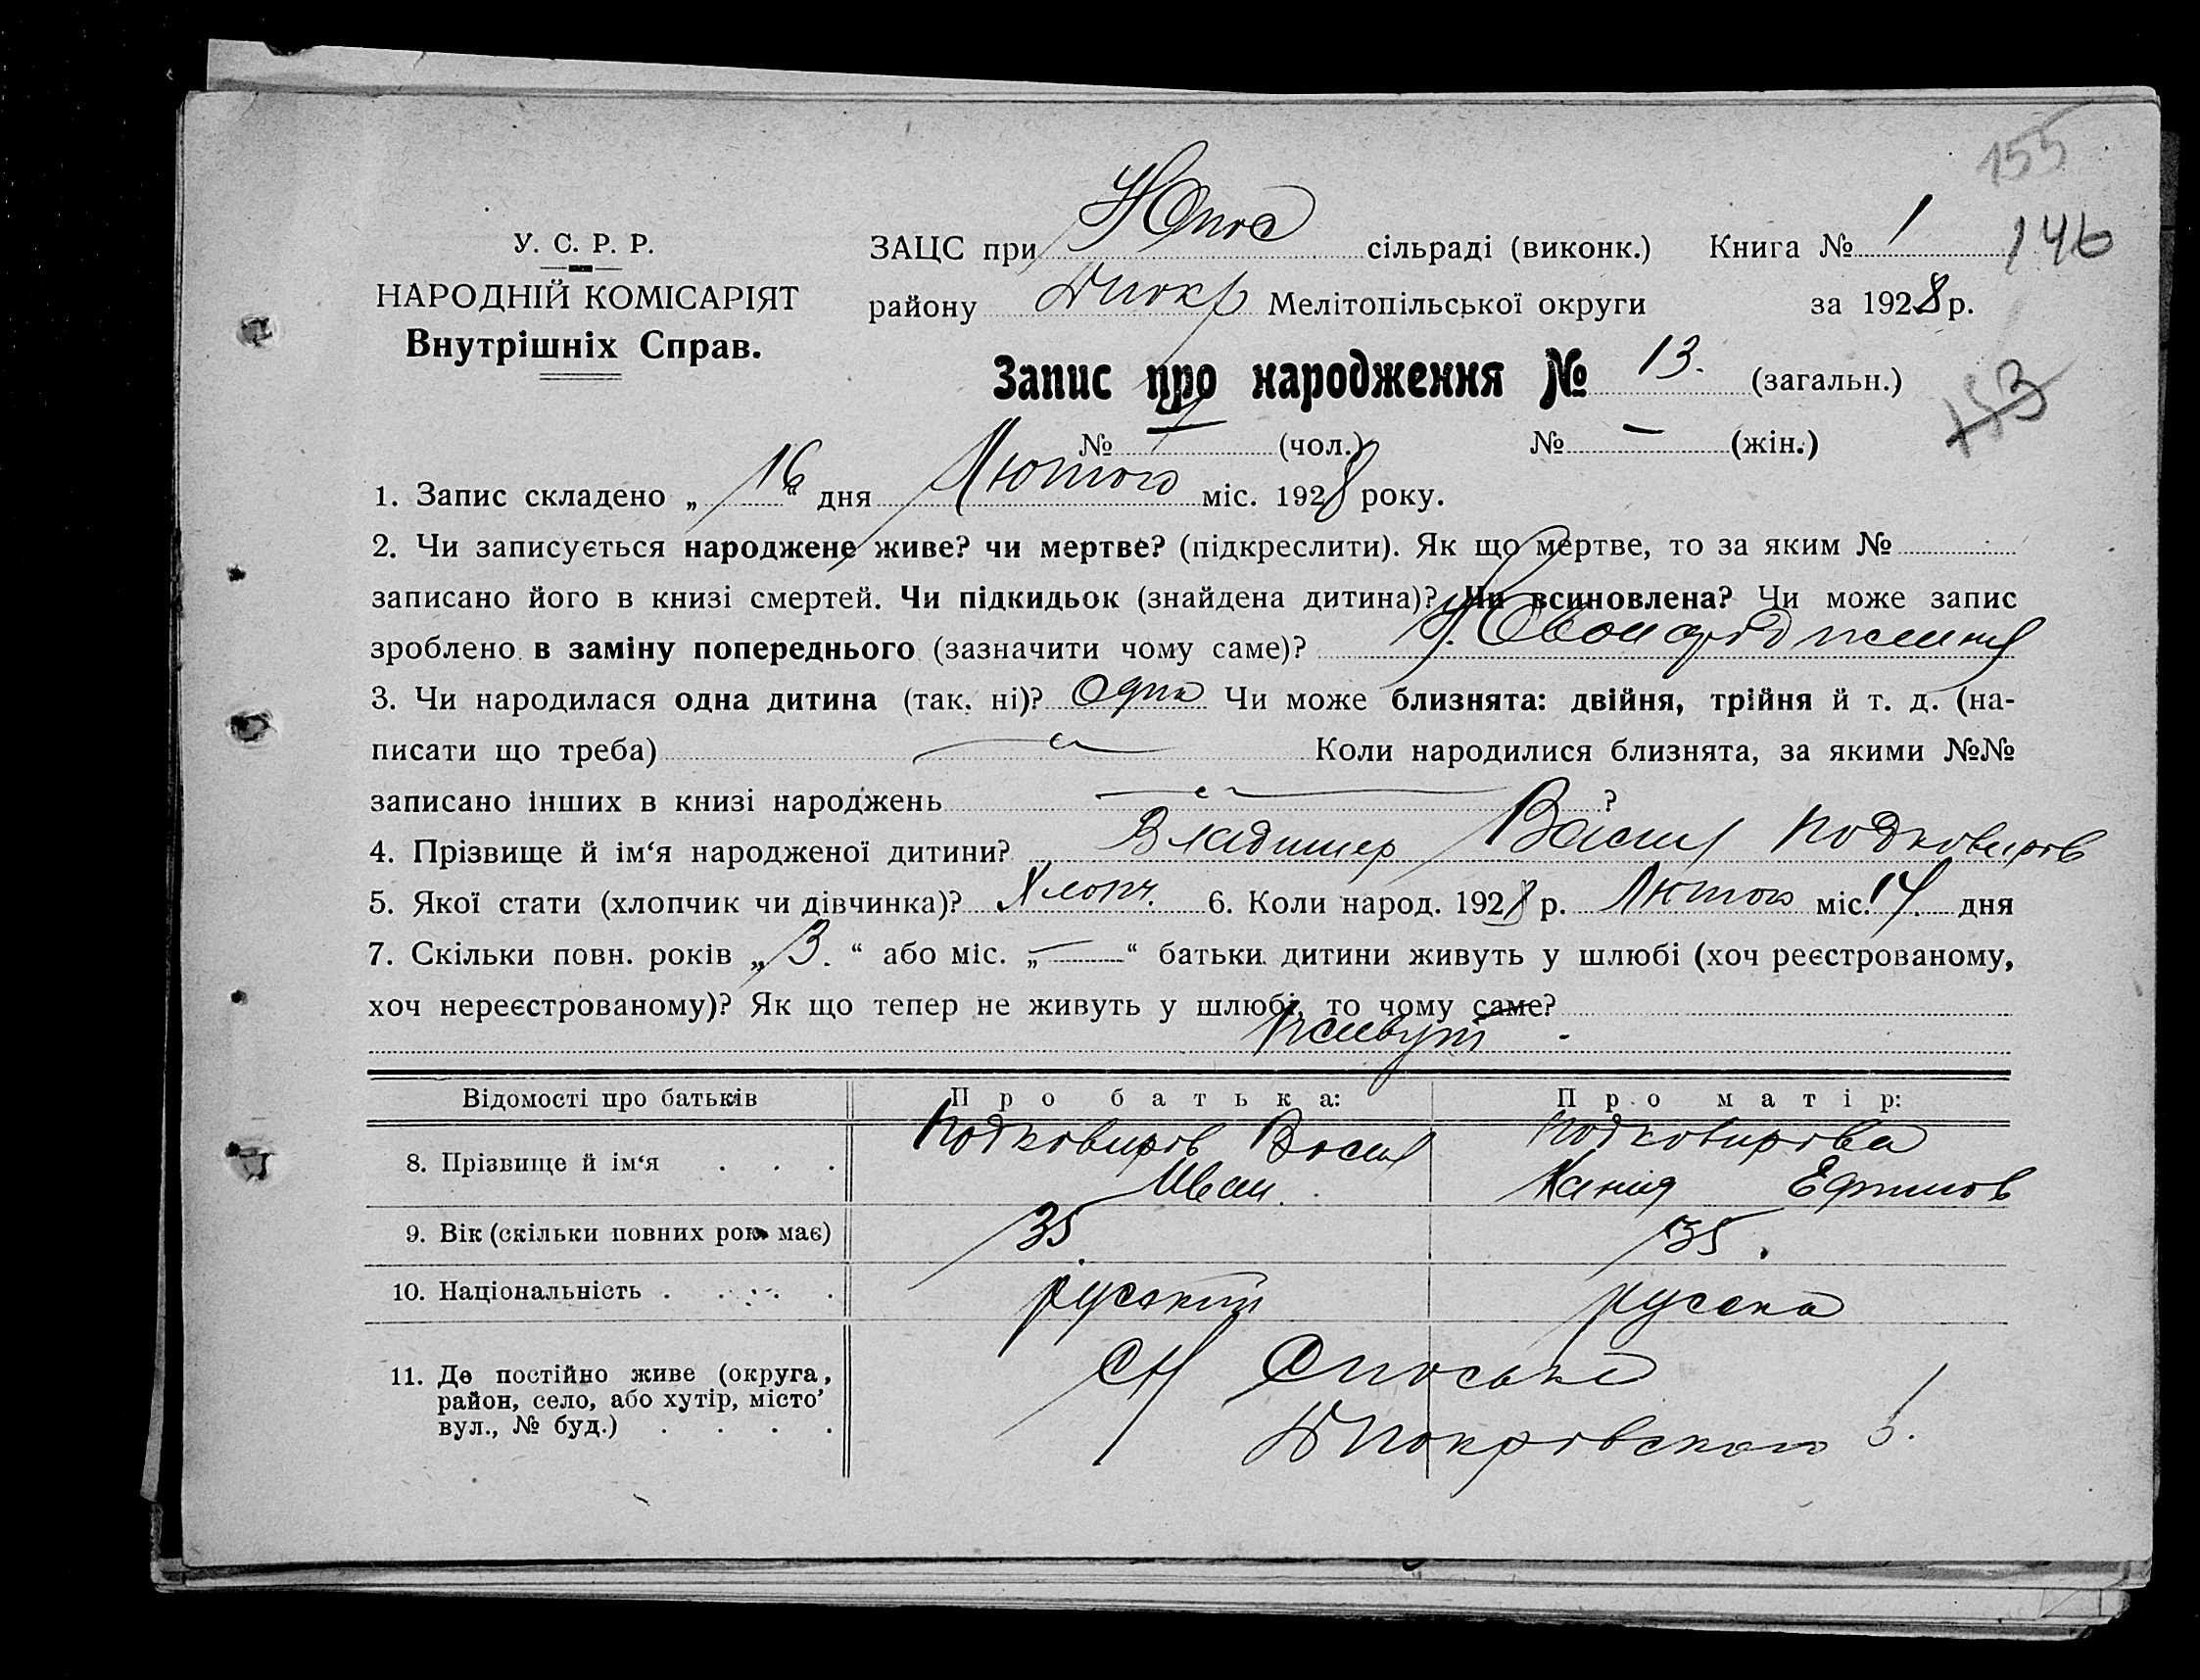 155
У. С. Р. Р.
НАРОДНІЙ КОМІСАРІЯТ
Внутрішніх Справ.
ЗАЦС при сільраді (виконк.) Книга № 1 146
району Мелітопільської округи за 1928 р.
Запис про народження № 13. (загальн.)
153
№ 7 (чол.) № – (жін.)
1. Запис складено „ 16 “ дня Лютого міс. 1928 року.
2. Чи записується народжене живе? чи мертве? (підкреслити). Як що мертве, то за яким №
записано його в книзі смертей. Чи підкидьок (знайдена дитина)? Чи всиновлена? Чи може запис
зроблено в заміну попереднього (зазначити чому саме)?
3. Чи народилася одна дитина (так, ні)? Одна Чи може близнята: двійня, трійня й т. д. (на-
писати що треба) Коли народилися близнята, за якими №№
записано інших в книзі народжень ?
4. Прізвище й ім‘я народженої дитини? Владимер Васил Подковиров
5. Якої стати (хлопчик чи дівчинка)? Хлопч. 6. Коли народ. 1928 р. Лютого міс. 14 дня
7. Скільки повн. років „ 3. “ або міс. „ — “ батьки дитини живуть у шлюбі (хоч реєстрованому,
хоч нереєстрованому)? Як що тепер не живуть у шлюбі, то чому саме?
живуть
Відомості про батьків Про батька: Про матір:
8. Прізвище й ім‘я . . . Подковиров Васил Иван. Подковирова Ефимов
9. Вік (скільки повних рок. має) 35. 35.
10. Національність . . . . руський руська
11. Де постійно живе (округа,
район, село, або хутір, місто’
вул., № буд.) . . . .
Покровского